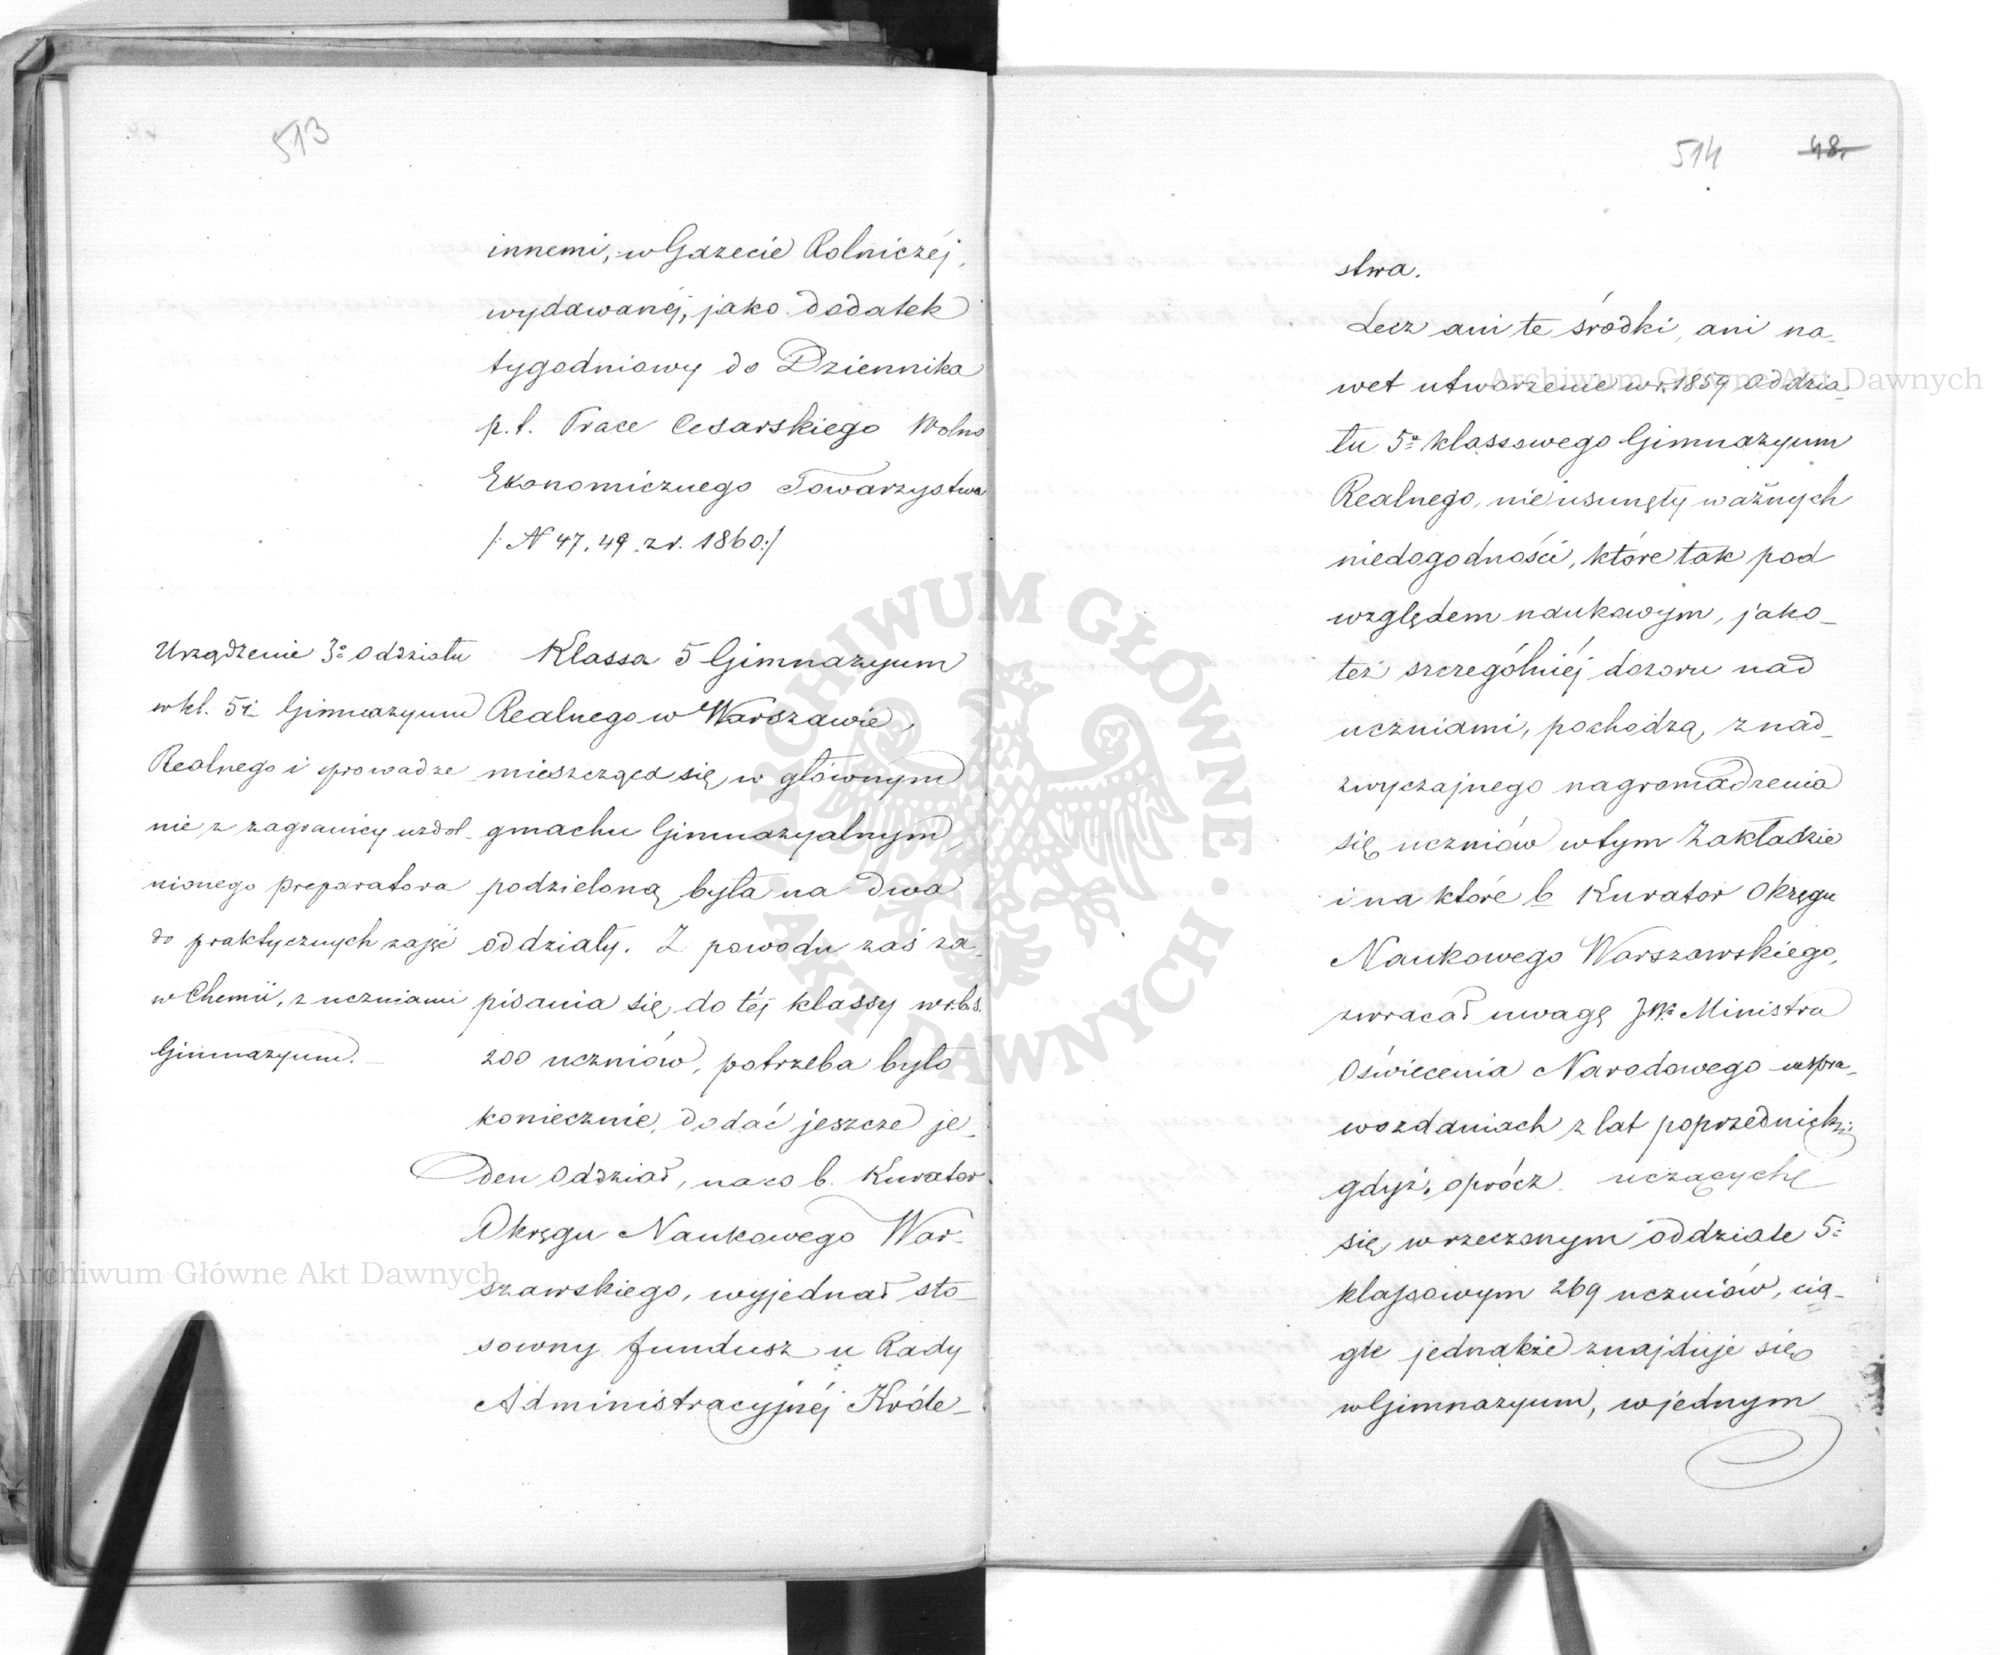 513
innemi, w Gazecie Rolniczéj,
wydawanéj, jako dodatek
tygodniowy do Dziennika
p.t. Prace Cesarskiego Wolno
Ekonomicznego Towarzystwa
/: N 47, 49, z r. 1860:/
Urządzenie 3º oddziału
w kl. 5éj Gimnazyum
Realnego i sprowadze
nie z zagranicy uzdol-
nionego preparatora
do praktycznych zajęć
w Chemii, z uczniami
Gimnazyum. —
Klassa 5 Gimnazyum
Realnego w Warszawie,
mieszcząca się, w głównym
gmachu Gimnazyalnym,
podzieloną była na dwa
oddziały. Z powodu zaś za-
pisania się, do téj klassy w r. b. s.
200 uczniów, potrzeba było
koniecznie, dodać jeszcze je-
den oddział, na co b. Kurator
Okręgu Naukowego War-
szawskiego, wyjednał sto-
sowny fundusz u Rady
Administracyjnéj Króle-
514 48.
stwa.
Lecz ani te środki, ani na-
wet utworzenie w r. 1859 oddzia-
łu 5º klassowego Gimnazyum
Realnego, nie usunęły ważnych
niedogodności, które tak pod
względem naukowym, jako-
też szczególniéj dozoru nad
uczniami, pochodzą, z nad-
zwyczajnego nagromadzenia
się, uczniów w tym Zakładzie
i na które b Kurator Okręgu
Naukowego Warszawskiego,
zwracał uwagę JWº Ministra
Oświecenia Narodowego w spra-
wozdaniach z lat poprzednich;
gdyż, oprócz uczących
się, w rzeczonym oddziale 5º
klassowym 269 uczniów, cią-
gle jednakże znajduje się,
w Gimnazyum, w jednym
Archiwum Główne Akt Dawnych
Archiwum Główne Akt Dawnych
· ARCHIWUM GŁÓWNE · AKT DAWNYCH